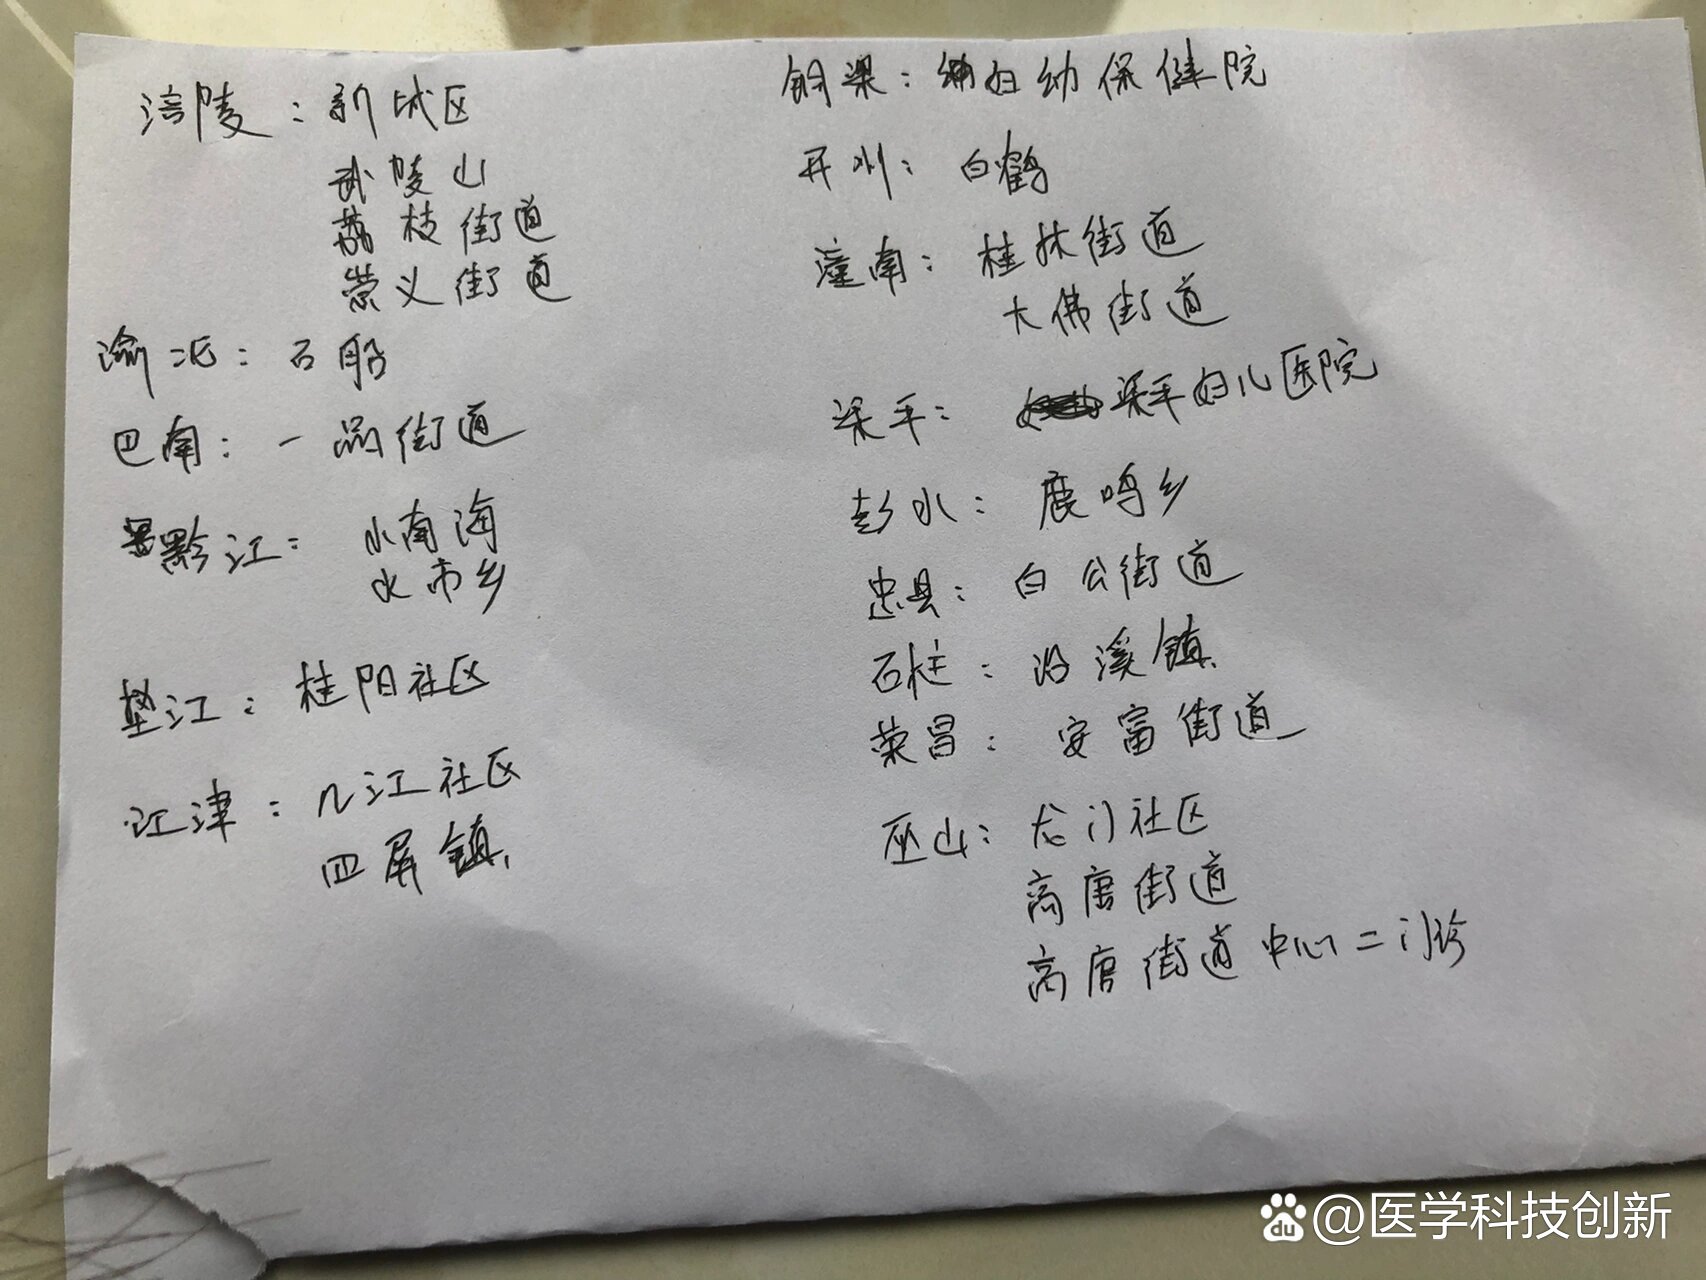 涪陵：新城区
武陵山
荔枝街道
崇义街道
渝北：石船
巴南：一品街道
黔江：小南海
水市乡
垫江：桂阳社区
江津：几江社区
四屏镇
铜梁：妇幼保健院
开州：白鹤
潼南：桂林街道
大佛街道
梁平：梁平妇儿医院
彭水：鹿鸣乡
忠县：白公街道
石柱：沿溪镇
荣昌：安富街道
巫山：龙门社区
高唐街道
高唐街道中心二门诊
du @医学科技创新